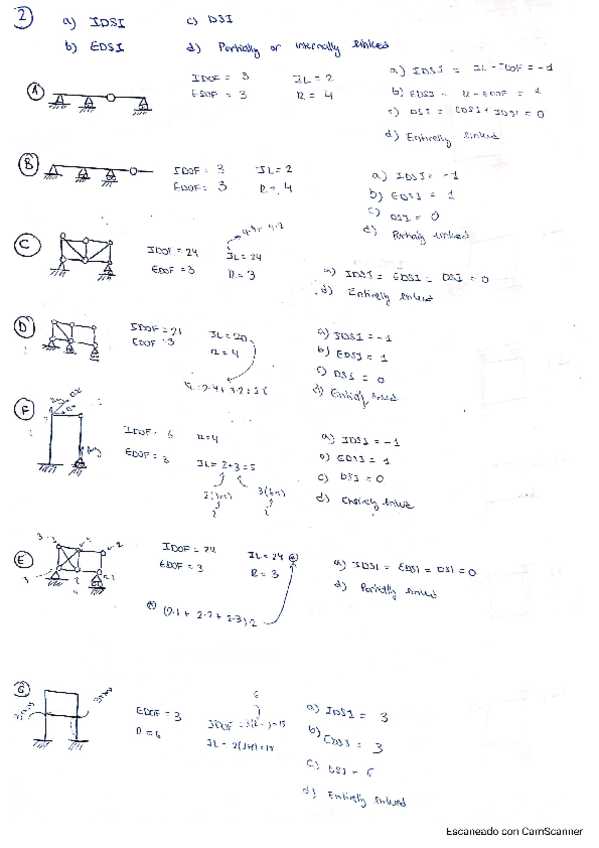 2
a) IDSI c) DSI
b) EDSI d) Partially or internally linked
A
IDOF = 3 IL = 2
EDOF = 3 R = 4
a) IDSI = IL - IDOF = -1
b) EDSI = R - EDOF = 1
c) DSI = EDSI + IDSI = 0
d) Entirely linked
B
IDOF = 3 IL = 2
EDOF = 3 R = 4
a) IDSI = -1
b) EDSI = 1
c) DSI = 0
d) Partially linked
C
IDOF = 24 IL = 24
EDOF = 3 R = 3
a) IDSI = EDSI = DSI = 0
d) Entirely linked
D
IDOF = 21 IL = 20
EDOF = 3 R = 4
a) IDSI = -1
b) EDSI = 1
c) DSI = 0
d) Entirely linked
F
IDOF = 6 R = 4
EDOF = 3 IL = 2+3 = 5
a) IDSI = -1
b) EDSI = 1
c) DSI = 0
d) Entirely linked
E
3 2
3
IDOF = 24 IL = 24
EDOF = 3 R = 3
a) IDSI = EDSI = DSI = 0
d) Partially linked
(2·1 + 2·2 + 2·3) 2
G
EDOF = 3
R = 6
6
a) IDSI = 3
b) EDSI = 3
c) DSI = 6
d) Entirely linked
Escaneado con CamScanner